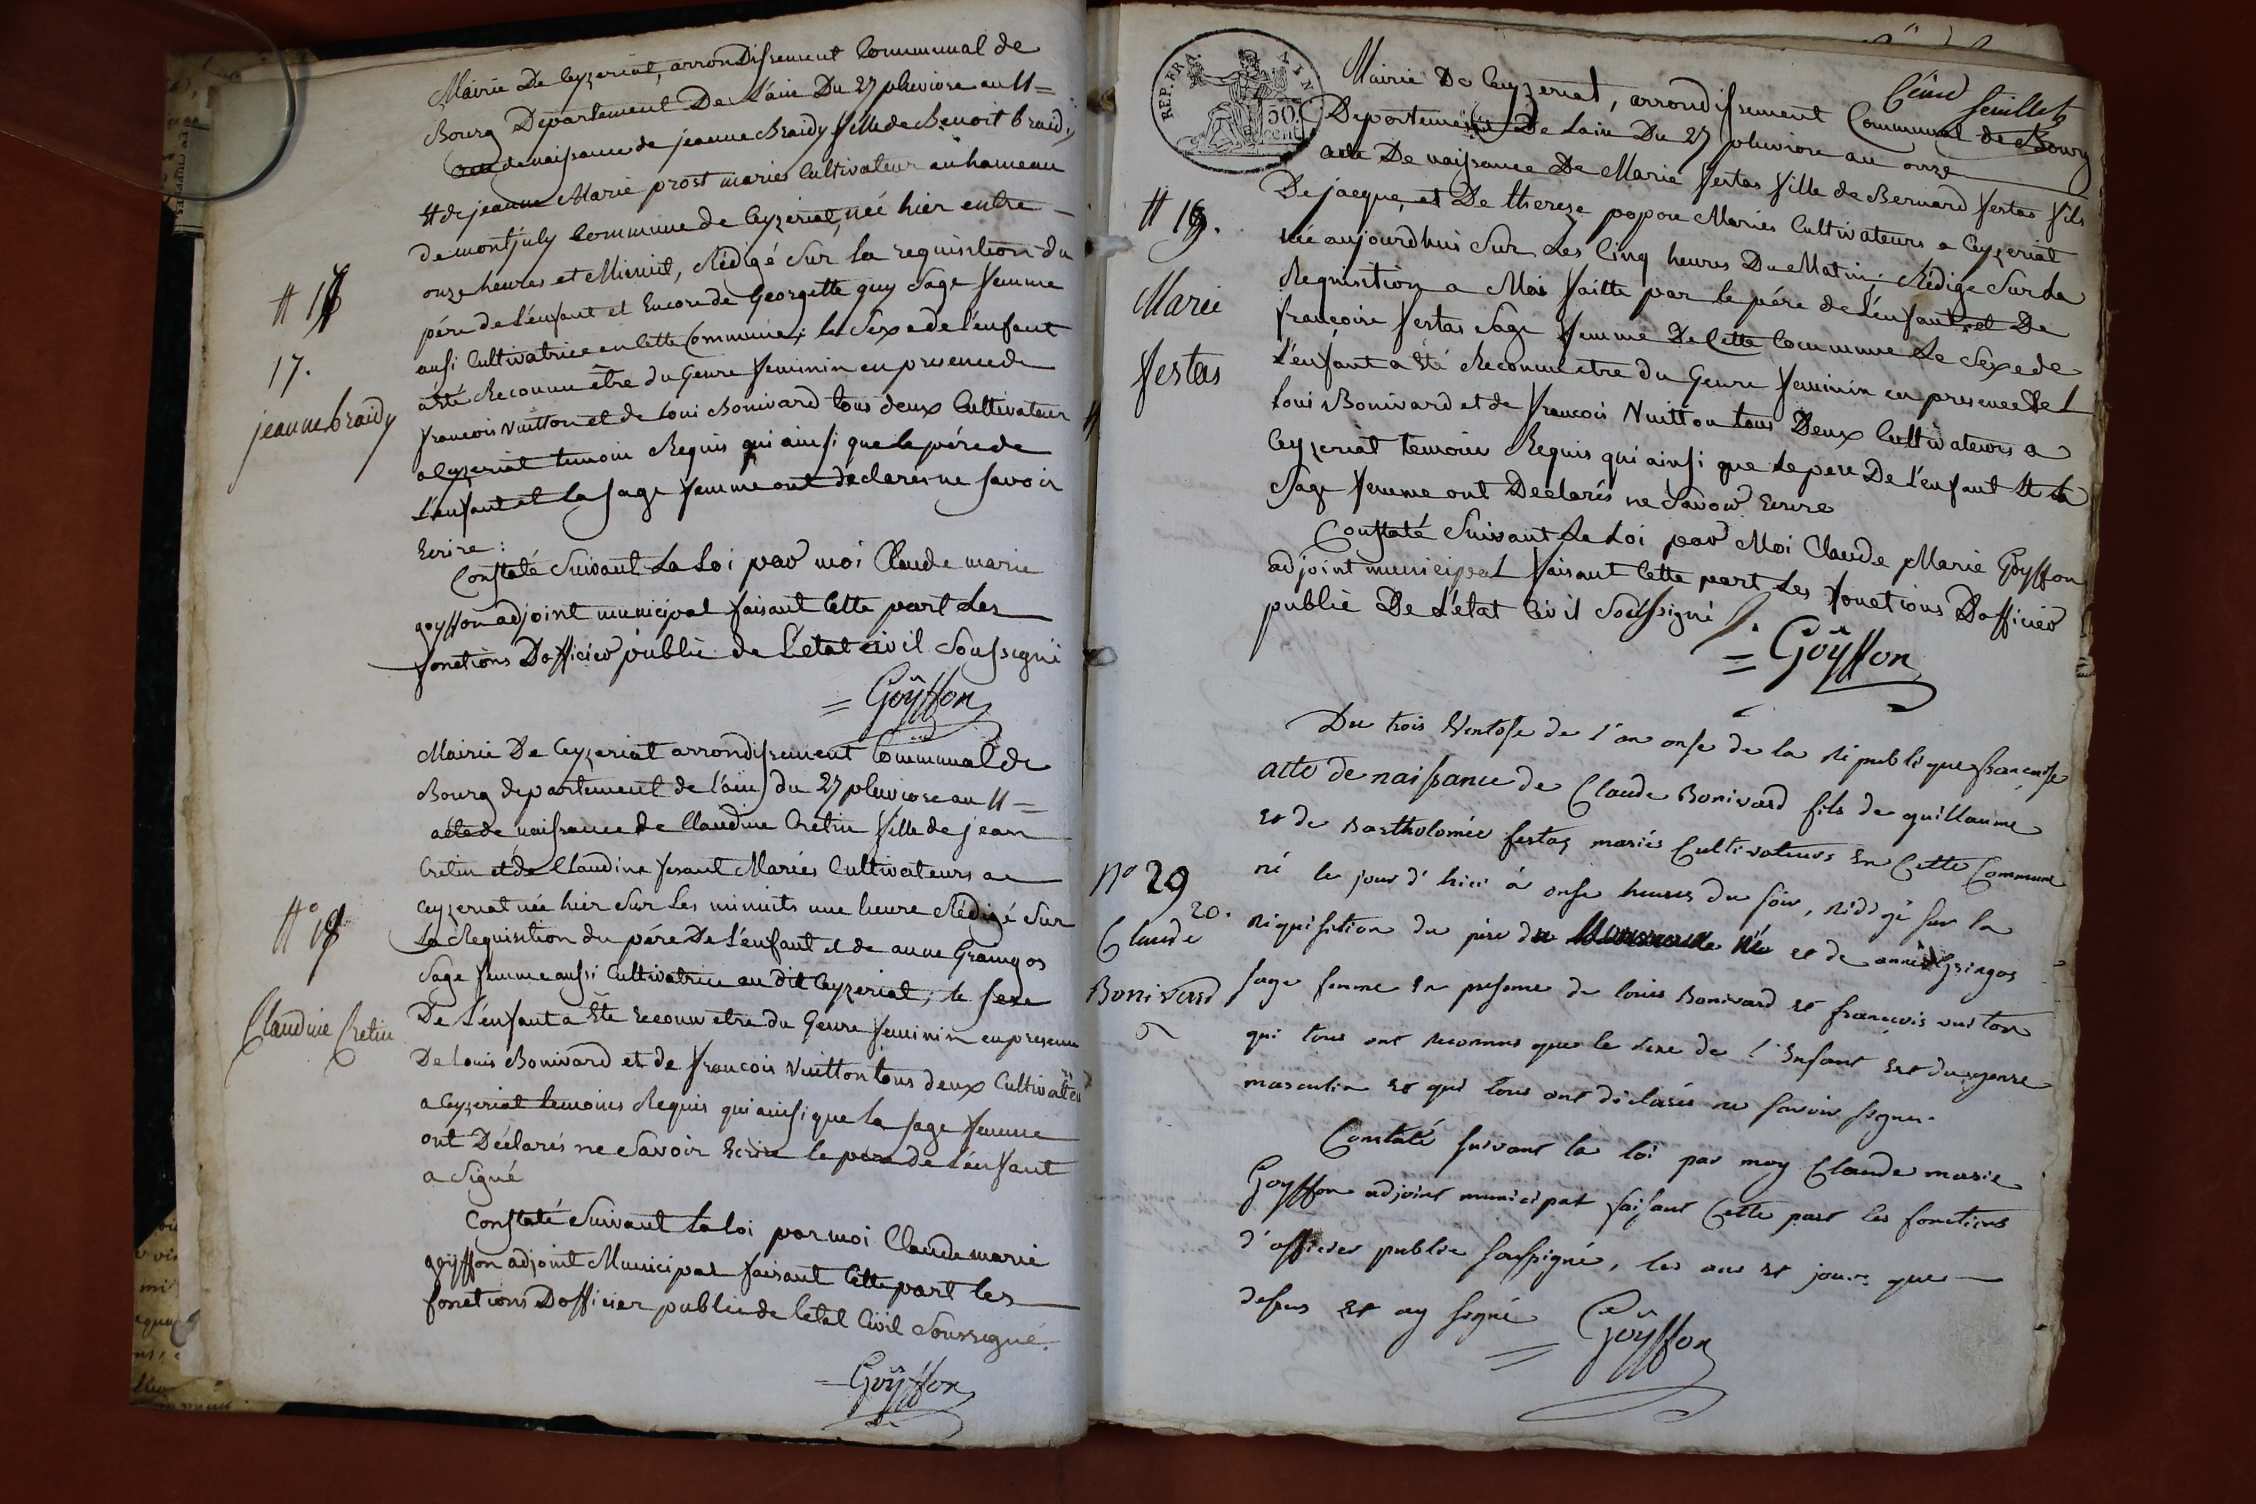 Mairie De Ceyzeriat, arrondissement Communal de
Bourg Département De L'ain Du 27 pluviose an 11 =
acte de naissance de jeanne Braidy fille de Benoit braidy
# de jeanne Marie prost mariés Cultivateur au hameau
de montjuly Commune de Ceyzeriat, née hier entre
onze heures et Minuit, Rédigé Sur la requisition du
pére de L'enfant et Encore de Georgette guy Sage femme
aussi Cultivatrice en Cette Commune; le Sexe de l'enfant
a été Reconnu être du Genre feminin en presence de
francois Vuitton et de Loui Bonivard tous deux Cultivateur
a Ceyzeriat temoin Requis qui ainsi que le pére de
L'enfant et la sage femme ont déclarés ne savoir
Ecrire :
Constaté Suivant La Loi par moi Claude marie
goyffon adjoint municipal faisant Cette part Les
fonctions D'officier public de L'état civil Soussigné
= Goÿffon
# 18
17.
jeanne braidy
Mairie De Ceyzeriat arrondissement Communal de
Bourg departement de l'ain du 27 pluviose an 11 =
acte de naissance de Claudine Cretin fille de jean
Cretin et de Claudine ferant Mariés Cultivateurs a
Ceyzeriat née hier Sur Les minuits une heure Rédigé Sur
La Requisition du pére De L'enfant et de anne Graingos
Sage femme aussi Cultivatrice au dit Ceyzeriat; le sexe
De L'enfant a Eté reconu etre du Genre feminin en presence
De Louis Bonivard et de francois Vuitton tous deux Cultivateu
a Ceyzeriat temoins Requis qui ainsi que la sage femme
ont Déclarés ne Savoir Ecrire le pére de L'enfant
a Signé
Constaté Suivant La loi par moi Claude marie
goÿffon adjoint Municipal faisant Cette part les
fonctions D'officier public de l'etat Civil Soussigné.
= Goÿffon
N° 18
Claudine Cretin
REP. FRA.
50
cent
Mairie De Ceyzeriat, arrondissement Communal de Bourg
feuillet
Departement De Lain Du 27 pluviose an onze
acte De naissance De Marie fertas fille de Bernard fertas fils
De jacque, et De thereze popon Mariés Cultivateurs a Ceyzeriat
née aujourdhui Sur Les Cinq heures Du Matin; Rédigé Sur La
Requisition a Moi faitte par le pére de L'enfant et De
francoise fertas Sage femme De Cette Commune Le Sexe de
L'enfant a Eté Reconnu etre du Genre feminin en presence De L
Loui Bonivard et de francois Vuitton tous Deux Cultivateurs a
Ceyzeriat temoin Requis qui ainsi que Le pere De L'enfant et La
Sage femme ont Déclarés ne Savoir Ecrire
Constaté Suivant La Loi par Moi Claude Marie Goyffon
adjoint municipal faisant Cette part Les fonctions D'officier
public De L'état Civil Soussigné
= Goÿffon
# 19.
Marie
fertas
Du trois Ventose de l'an onse de la République française
acte de naissance de Claude Bonivard fils de guillaume
et de Bartholomée fertas mariés Cultivateurs en Cette Commune
né le jour d'hier à onse heures du soir, rédigé sur la
réquisition du pere et de anne Gringos
sage femme en présence de louis Bonivard et françois vuiton
qui tous ont reconnus que le sexe de l'Enfant est du genre
masculin et qui tous ont déclarés ne savoir signer.
Constaté suivant la loi par moy Claude marie
Goyffon adjoint municipal faisant Cette part les fonctions
d'officier public soussigné, les an et jour que
dessus et ay signé
= Goÿffon
N° 29
20.
Claude
Bonivard